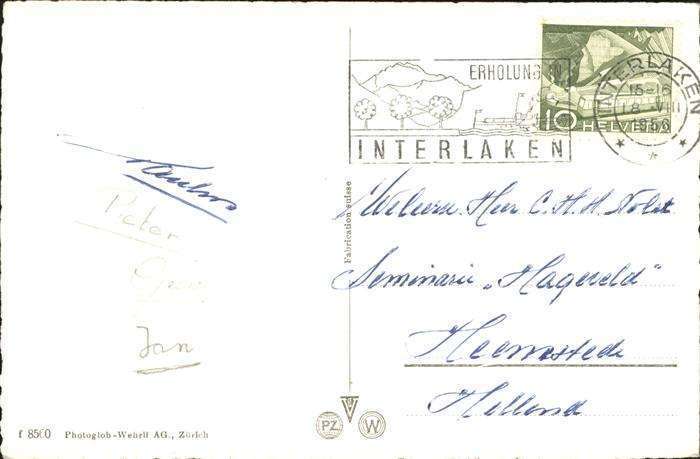 ERHOLUNG IN
INTERLAKEN
10 HELVETIA
INTERLAKEN
15-16
18. VIII
1956
Paulus
Pieter
Jan
Fabrication suisse
Weleerw. Heer C. H. H. Nolet
Seminarie „Hageveld"
Heemstede
Holland
f 8500 Photoglob-Wehrli AG., Zürich
PZ
W